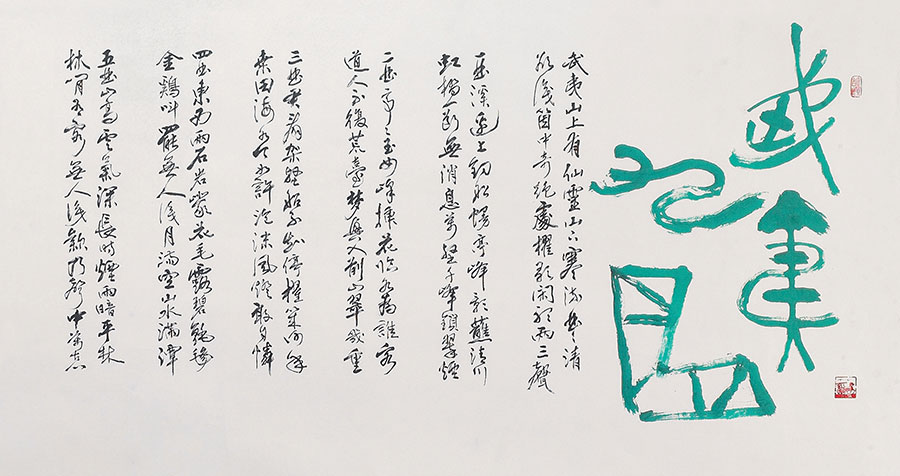 武夷
九曲
武夷山上有仙靈山下寒流曲曲清
欲識箇中奇絶處櫂歌閑聽兩三聲
一曲溪邊上釣船幔亭峰影蘸晴川
虹橋一斷無消息萬壑千峰鎖翠煙
二曲亭亭玉女峰插花臨水為誰容
道人不復荒臺夢興入前山翠幾重
三曲君看架壑船不知停櫂幾何年
桑田海水今如許泡沫風燈敢自憐
四曲東西兩石岩岩花垂露碧㲯毿
金鷄叫罷無人識月滿空山水滿潭
五曲山高雲氣深長時煙雨暗平林
林間有客無人識欸乃聲中萬古心